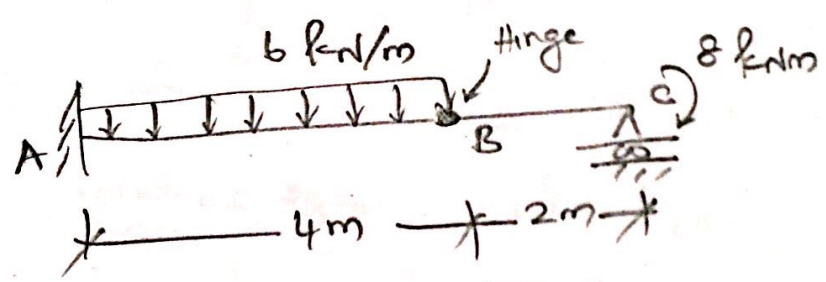 6 kN/m
Hinge
8 kNm
C
A
B
4m
2m